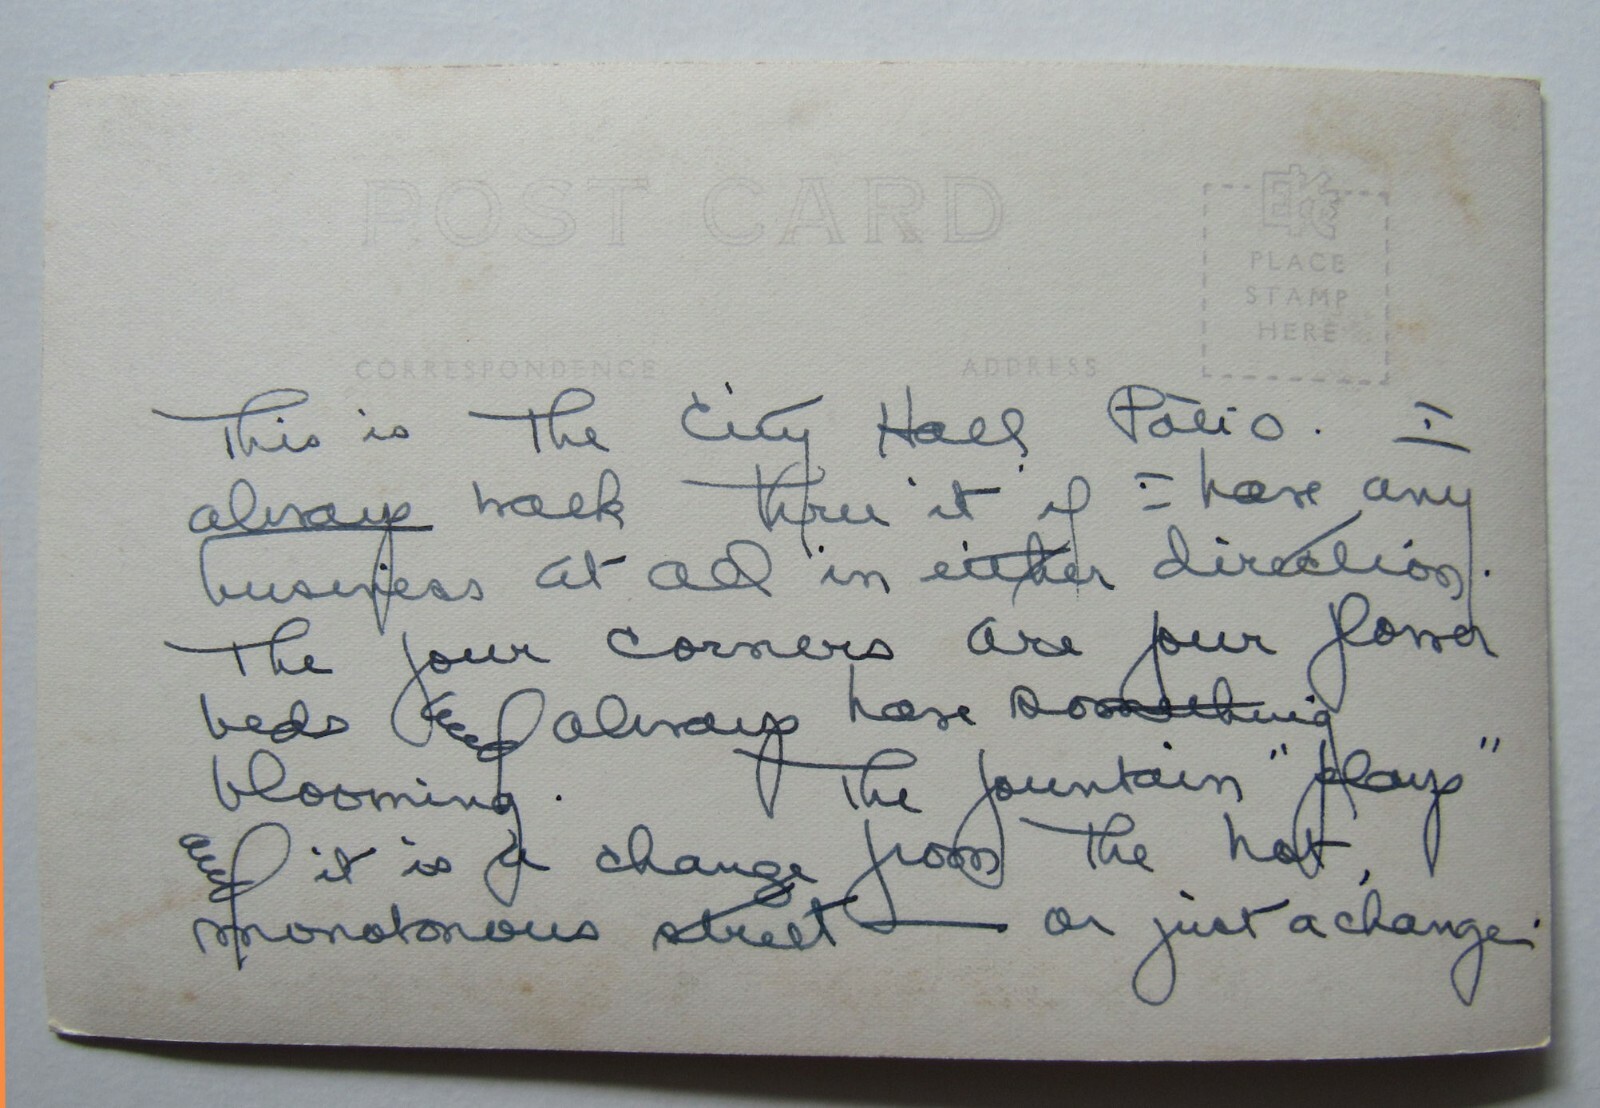 POST CARD
EKC
PLACE
STAMP
HERE
CORRESPONDENCE ADDRESS
This is the City Hall Patio. I
always walk thru it if I have any
business at all in either direction.
The four corners are four flower
beds and always have something
blooming. The fountain "plays"
and it is a change from the hot,
monotonous street — or just a change.